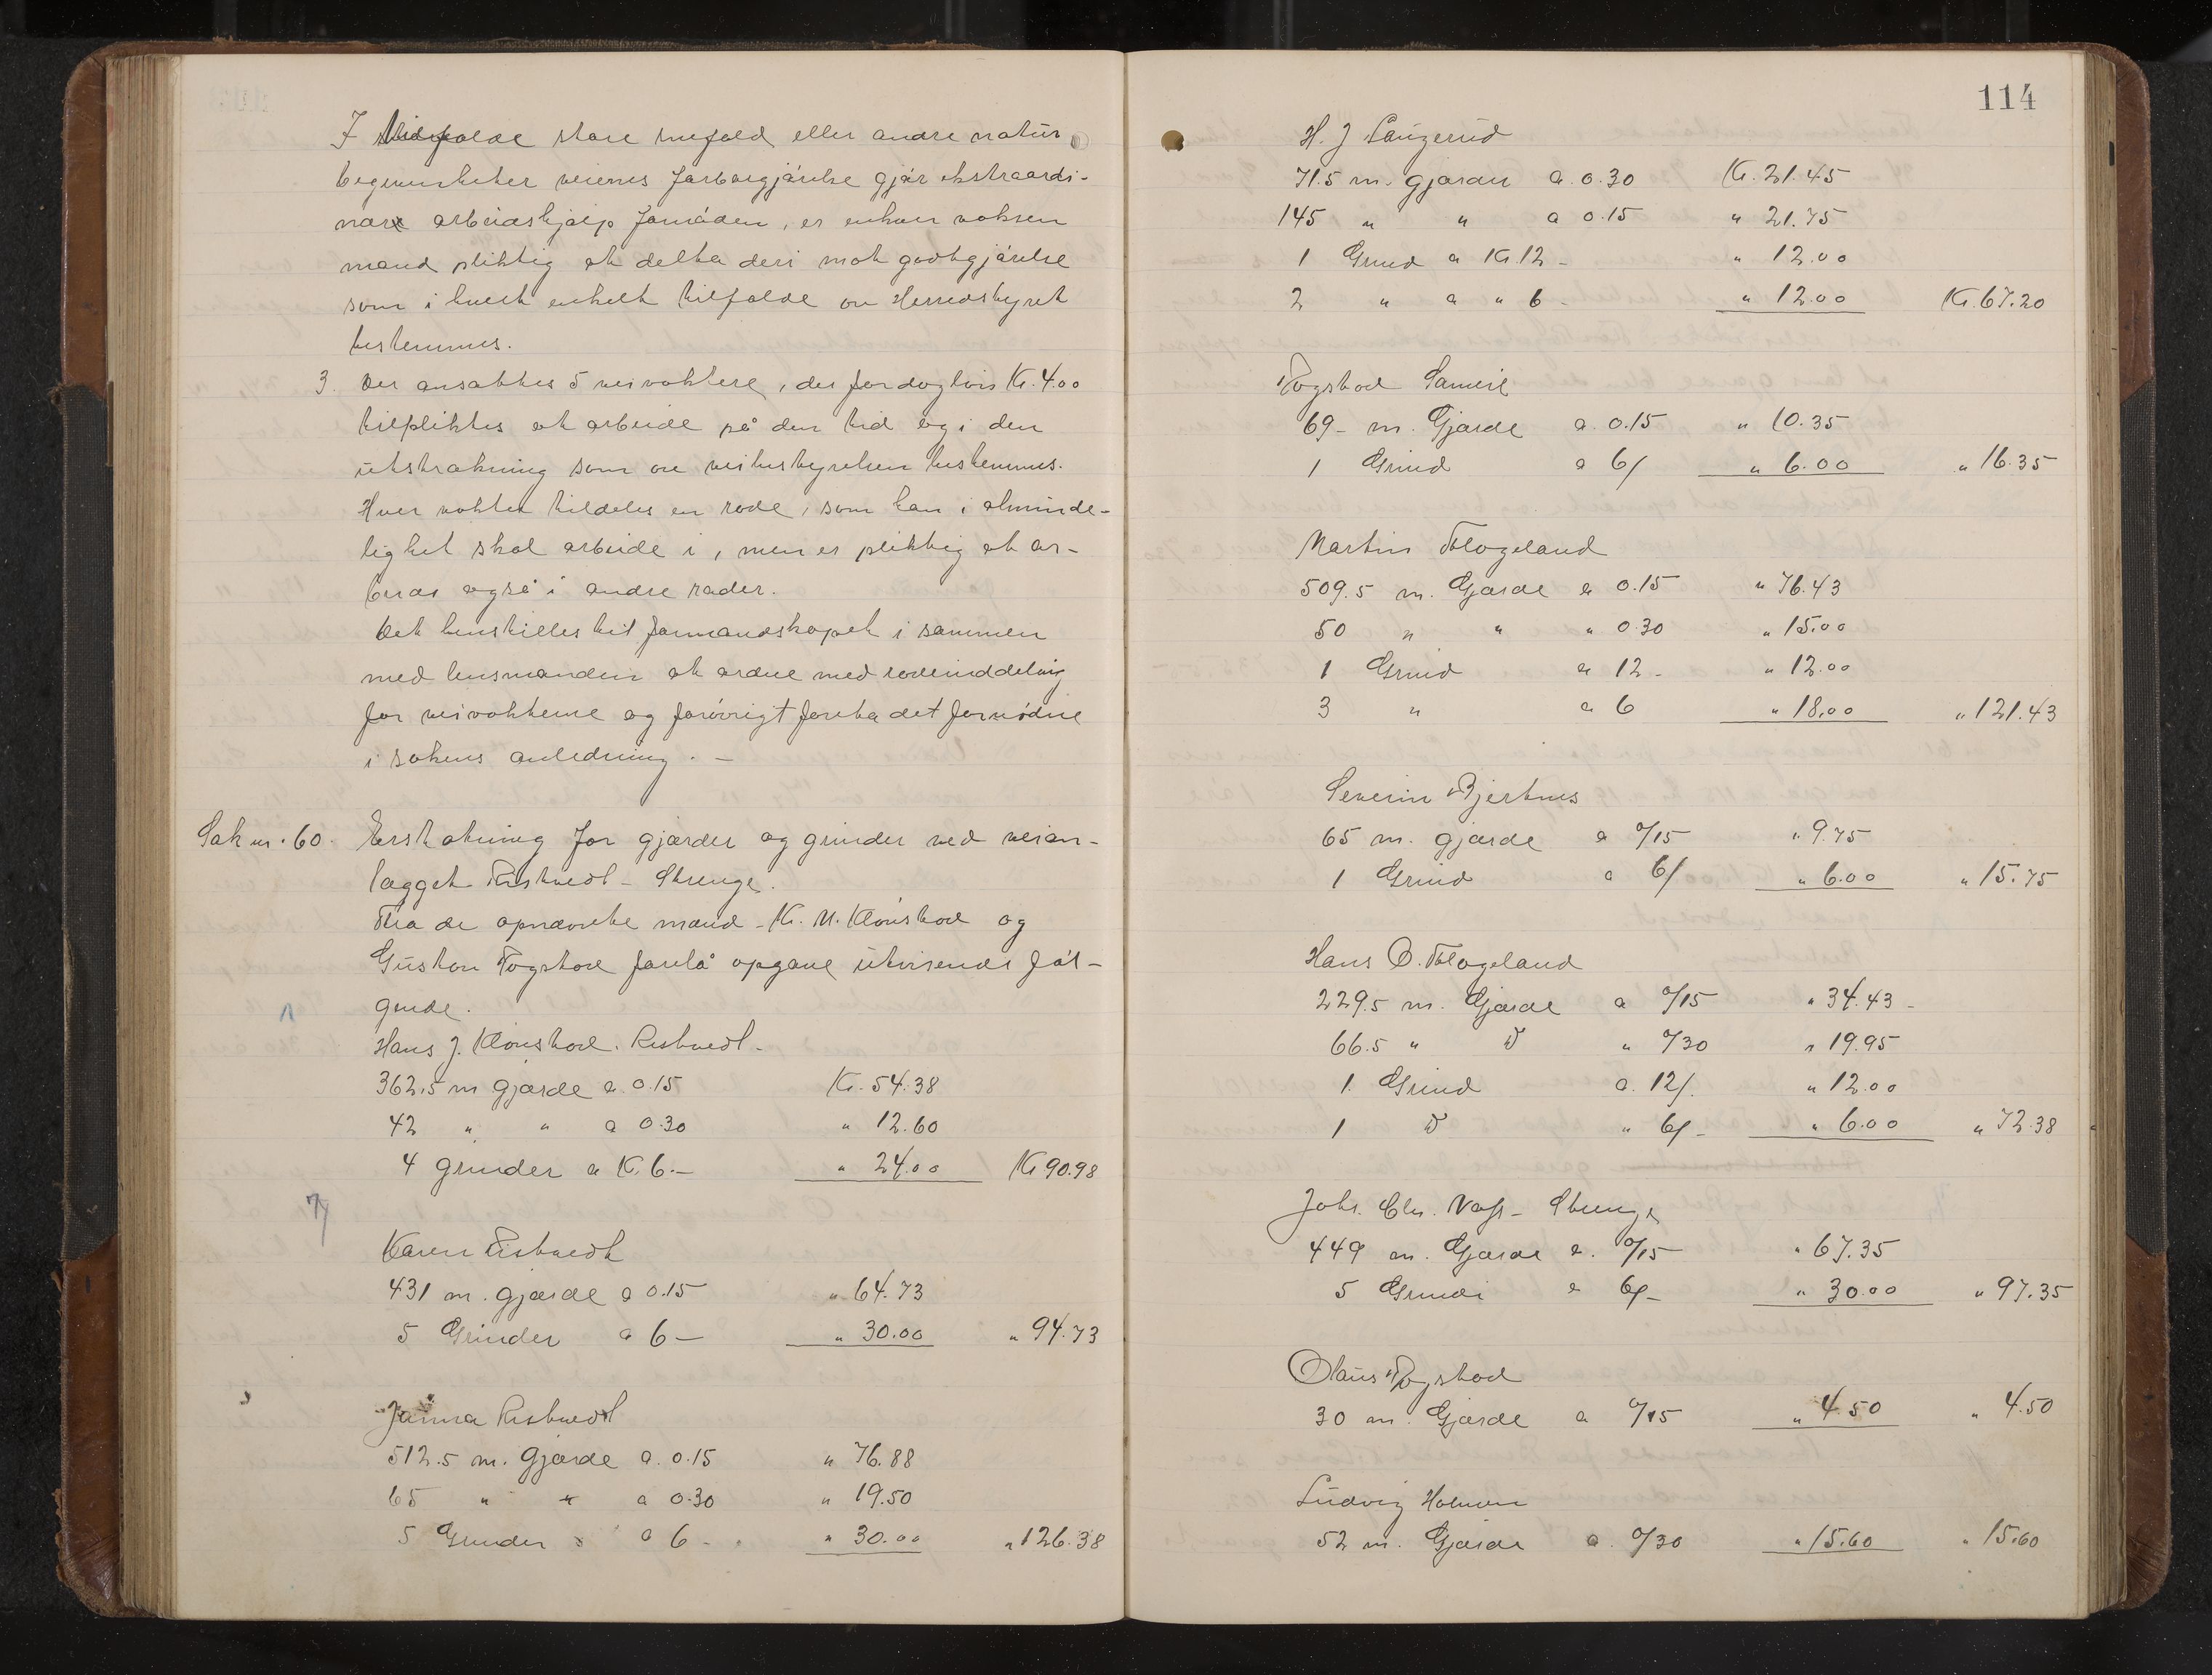 I tilfælde store snefald eller andre natur
begivenheter veienes farbargjørelse gjør ekstraordi-
nær arbeidshjælp fornøden, er enhver voksen
mand pliktig at delta deri mot godtgjørelse
som i hvert enkelt tilfælde av Herredstyret
bestemmes.
3. Der ansættes 5 veivoktere, der for dagløn Kr. 4.00
tilpliktes at arbeide på den tid og i den
utstrækning som av veibestyrelsen bestemmes.
Hver vokter tildeles en rode, som han i alminde-
lighet skal arbeide i, men er pliktig at ar-
beide også i andre roder.
Det henstilles til formandskapet i sammen
med lensmanden at ordne med rodeinddeling
for veivokterne og forøvrigt foreta det fornødne
i sakens anledning. -
Sak nr. 60. Erstatning for gjærder og grinder ved veian-
lægget Ristvedt - Strenge.
Fra de opnævnte mænd - Kr. M. Klovstad og
Gustav Fogstad forelå opgave utvisende føl-
gende.
1
Hans J. Klovstad. Ristvedt -
362.5 m gjærde a 0.15 Kr. 54.38
42 " " a 0.30 " 12.60
4 grinder a Kr. 6.- " 24.00 Kr 90.98
Karen Ristvedt
431 m. gjærde a 0.15 " 64.73
5 Grinder a 6 - " 30.00 " 94.73
Ristvedt
512.5 m. Gjærde a 0.15 " 76.88
65 " " a 0.30 " 19.50
5 Grinder a 6 - " 30.00 " 126.38
114
H. J Laugerud
71.5 m. gjærder a. 0.30 Kr. 21.45
145 " " a 0.15 " 21.75
1 Grind a Kr. 12 - " 12.00
2 " a " 6 - " 12.00 Kr. 67.20
Fogstad Sameie
69 - m. Gjærde a. 0.15 " 10.35
1 Grind a 6/ " 6.00 " 16.35
Martin Flogeland
509.5 m. Gjærde a 0.15 " 76.43
50 " " " 0.30 " 15.00
1 Grind a 12 - " 12.00
3 " a 6 " 18.00 " 121.43
Severin Bjertnes
65 m. gjærde a 0/15 " 9.75
1 Grind a 6/ " 6.00 " 15.75
Hans O. Flogeland
229.5 m. Gjærde a 0/15 " 34.43 -
66.5 " D " 0/30 " 19.95
1. Grind a. 12/. " 12.00
1 D " 6/- " 6.00 " 72.38
Johs. Chr. Vass - Strenge
449 m. Gjærde a. 0/15 " 67.35
5 Grinder a 6/- " 30.00 " 97.35
Olaus Fogstad
30 m. Gjærde a 0/15 " 4.50 " 4.50
Ludvig Holmen
52 m. Gjærde a. 0/30 " 15.60 " 15.60